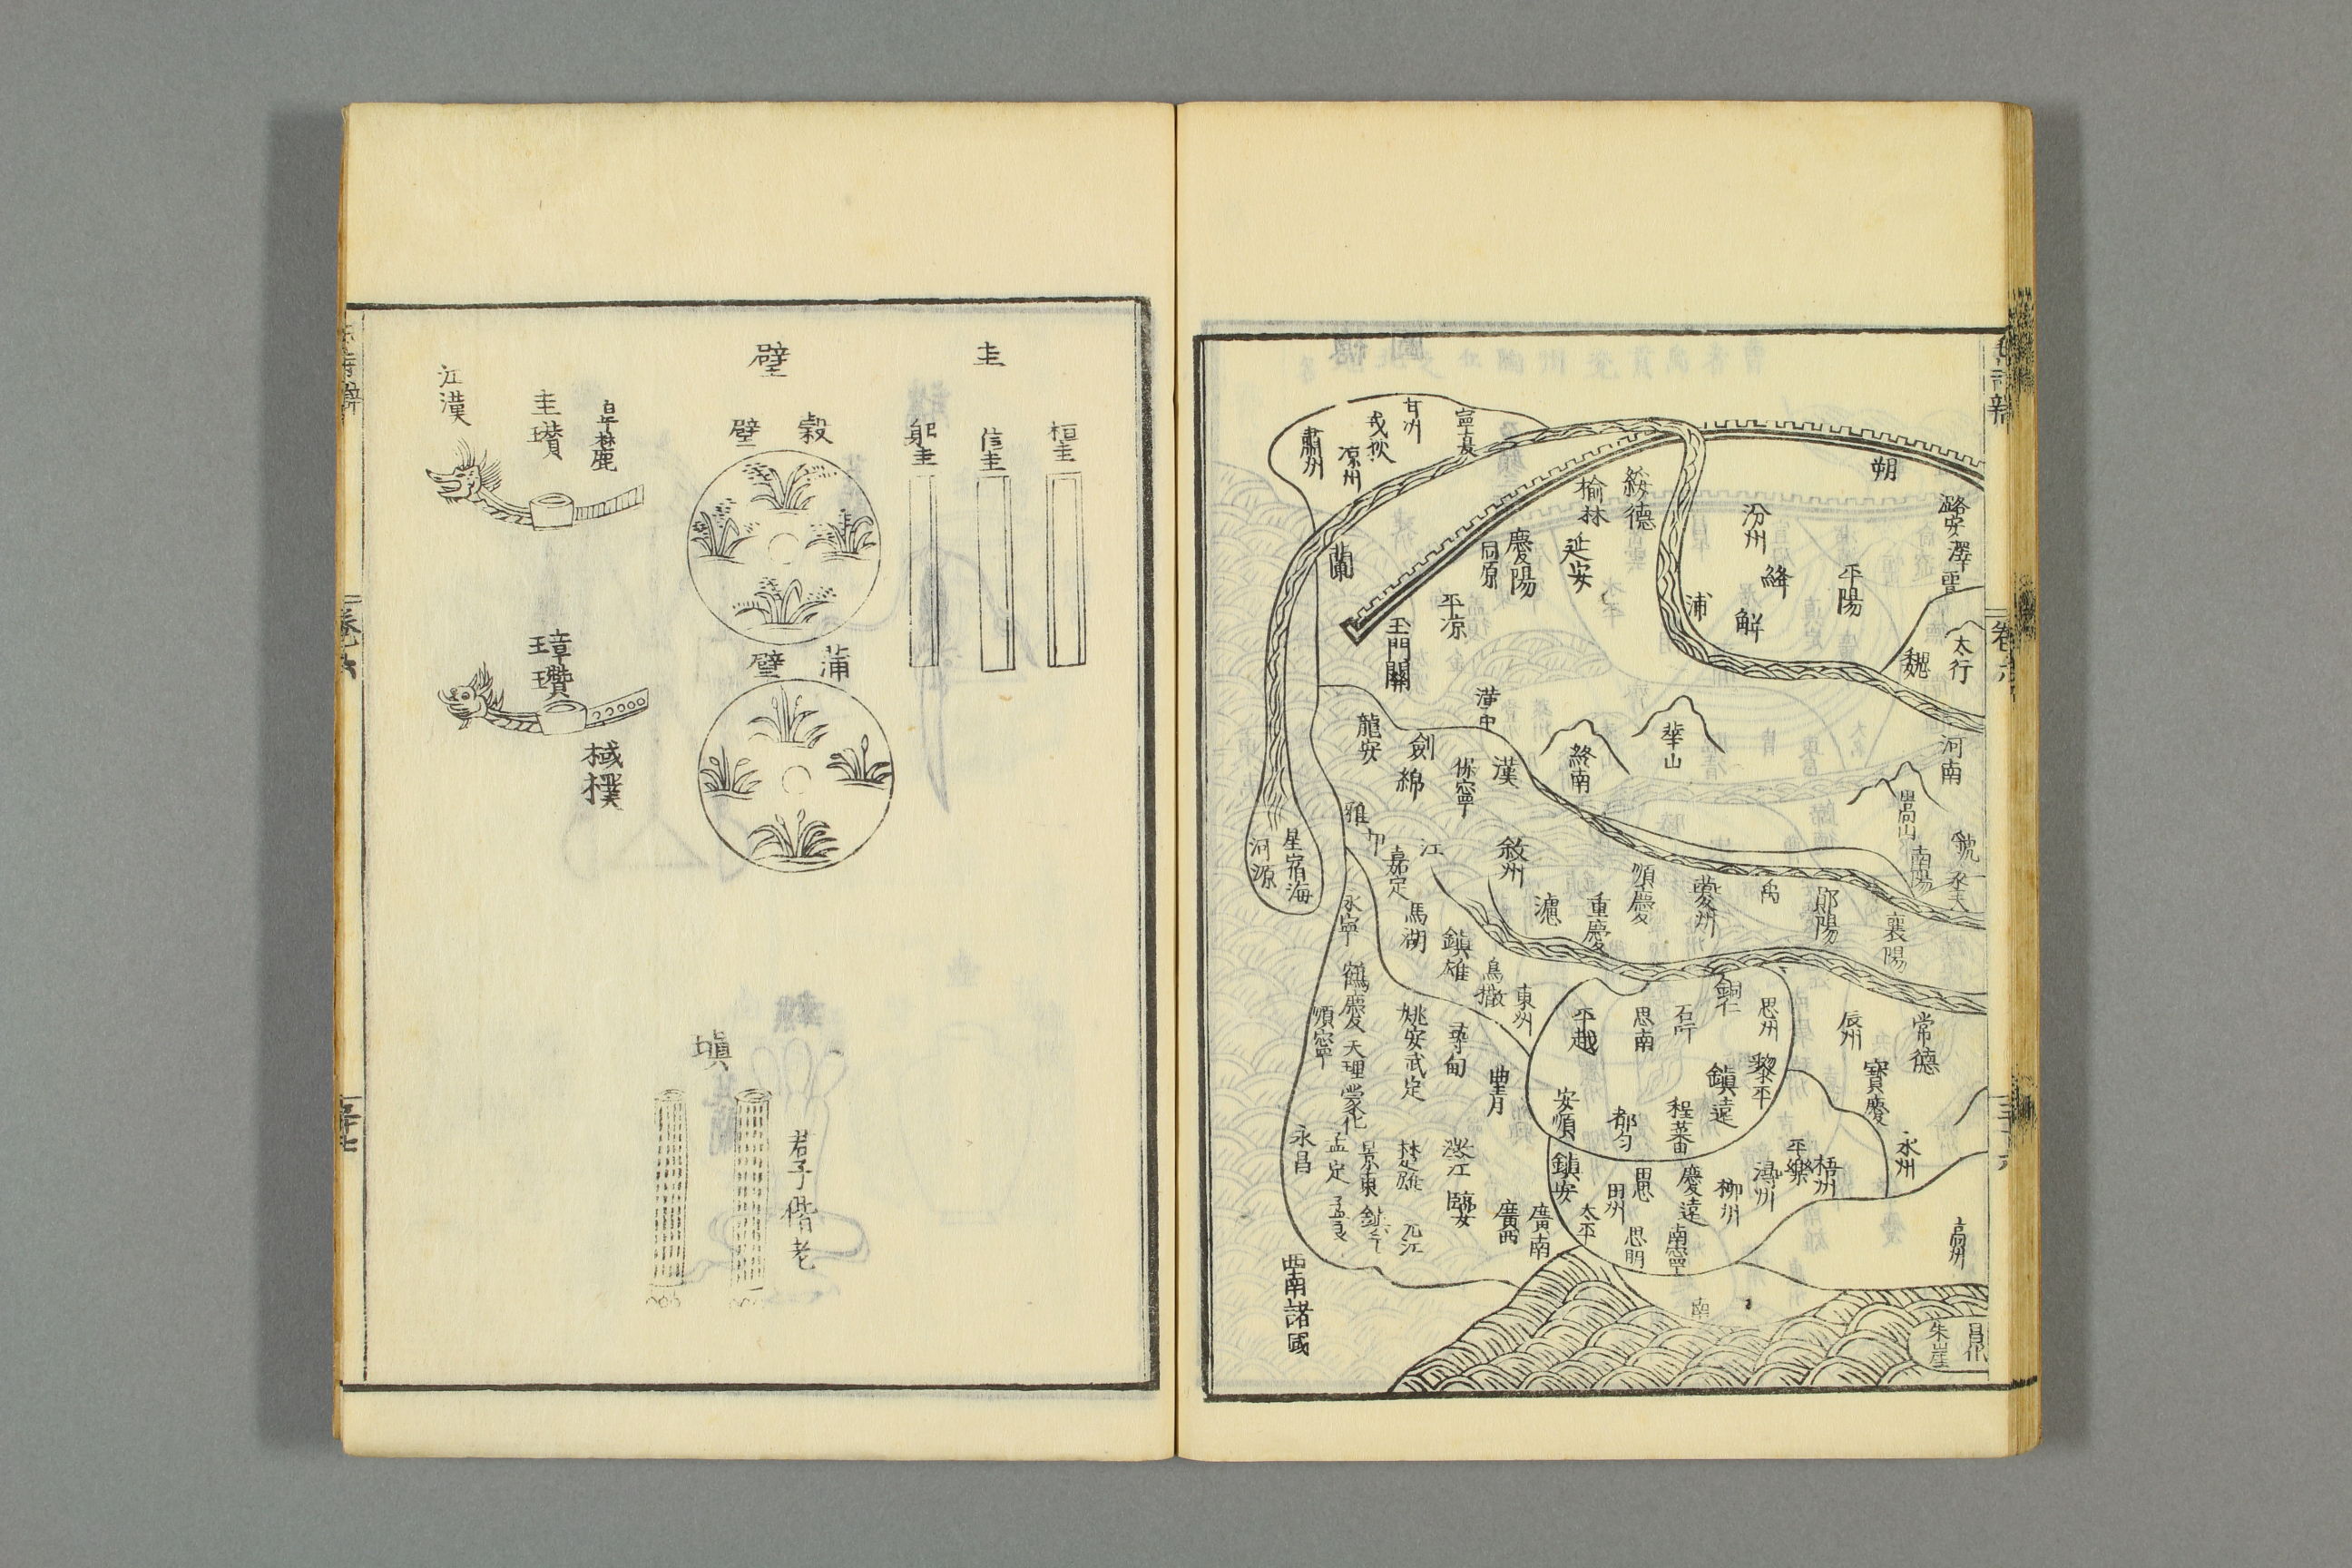 朔
潞安
澤
汾州
絳
平陽
解
蒲
魏
太行
綏德
榆林
延安
慶陽
固原
平凉
玉門關
蘭
寧夏
甘州
戎狄
凉州
肅州
河南
華山
終南
嵩山
南陽
漢中
漢
保寧
劍
綿
龍安
雅
卭
江
嘉定
敘州
馬湖
瀘
重慶
順慶
夔州
鄖陽
襄陽
星宿海
河源
永寧
鎮雄
烏撒
東州
鶴慶
順寧
大理
蒙化
姚安
武定
尋甸
曲靖
平越
思南
石阡
銅仁
思州
黎平
鎮遠
安順
都勻
程蕃
辰州
常德
寶慶
永州
永昌
孟定
景東
楚雄
澂江
臨安
元江
廣西
廣南
鎮安
田州
思恩
太平
思明
慶遠
南寧
柳州
潯州
平樂
梧州
高州
西南諸國
朱崖
卷六
圭
桓圭
信圭
躬圭
璧
穀璧
蒲璧
圭瓚
旱麓
江漢
璋瓚
棫樸
瑱
君子偕老
卷之六